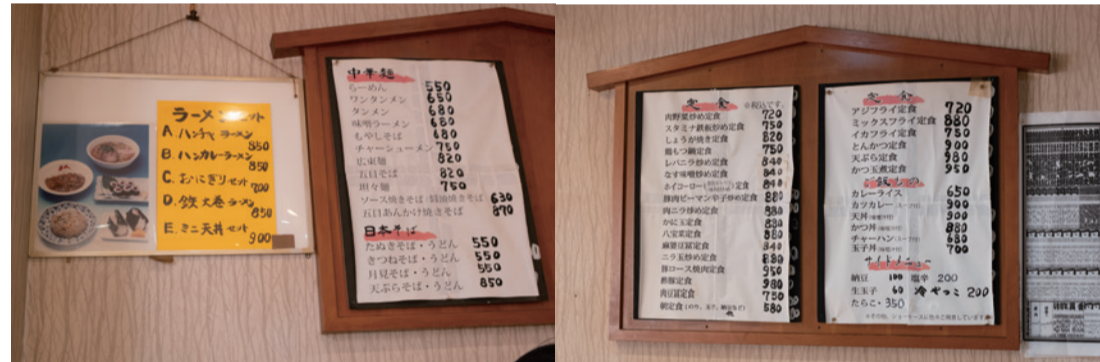 ラーメンセット
A. ハンチャ ラーメン
850
B. ハンカレーラーメン
850
C. おにぎりセット
700
D. 鉄火巻ラーメン
850
E. ミニ天丼セット
900
中華麺
らーめん 550
ワンタンメン 650
タンメン 680
味噌ラーメン 680
もやしそば 680
チャーシューメン 750
広東麺 820
五目そば 820
坦々麺 750
ソース焼きそば・醤油焼きそば 630
五目あんかけ焼きそば 870
日本そば
たぬきそば・うどん 550
きつねそば・うどん 550
月見そば・うどん 550
天ぷらそば・うどん 850
定食 ※税込です。
肉野菜炒め定食 720
スタミナ鉄板炒め定食 750
しょうが焼き定食 820
鶏もつ鍋定食 750
レバニラ炒め定食 840
なす味噌炒め定食 840
ホイコーロー 定食 840
豚肉ピーマン辛子炒め定食 880
肉ニラ炒め定食 880
かに玉定食 880
八宝菜定食 880
麻婆豆腐定食 840
ニラ玉炒め定食 880
豚ロース焼肉定食 950
酢豚定食 980
肉豆冨定食 750
朝定食(のり、玉子、納豆など) 580
定食
アジフライ定食 720
ミックスフライ定食 880
イカフライ定食 750
とんかつ定食 900
天ぷら定食 980
かつ玉煮定食 950
ご飯もの
カレーライス 650
カツカレー(スープ付) 900
天丼(味噌汁付) 900
かつ丼(味噌汁付) 880
チャーハン(スープ付) 680
玉子丼(味噌汁付) 700
サイドメニュー
納豆 100 塩辛 200
生玉子 60 冷やっこ 200
たらこ・350
※その他、ショーケースに色々ご用意しています